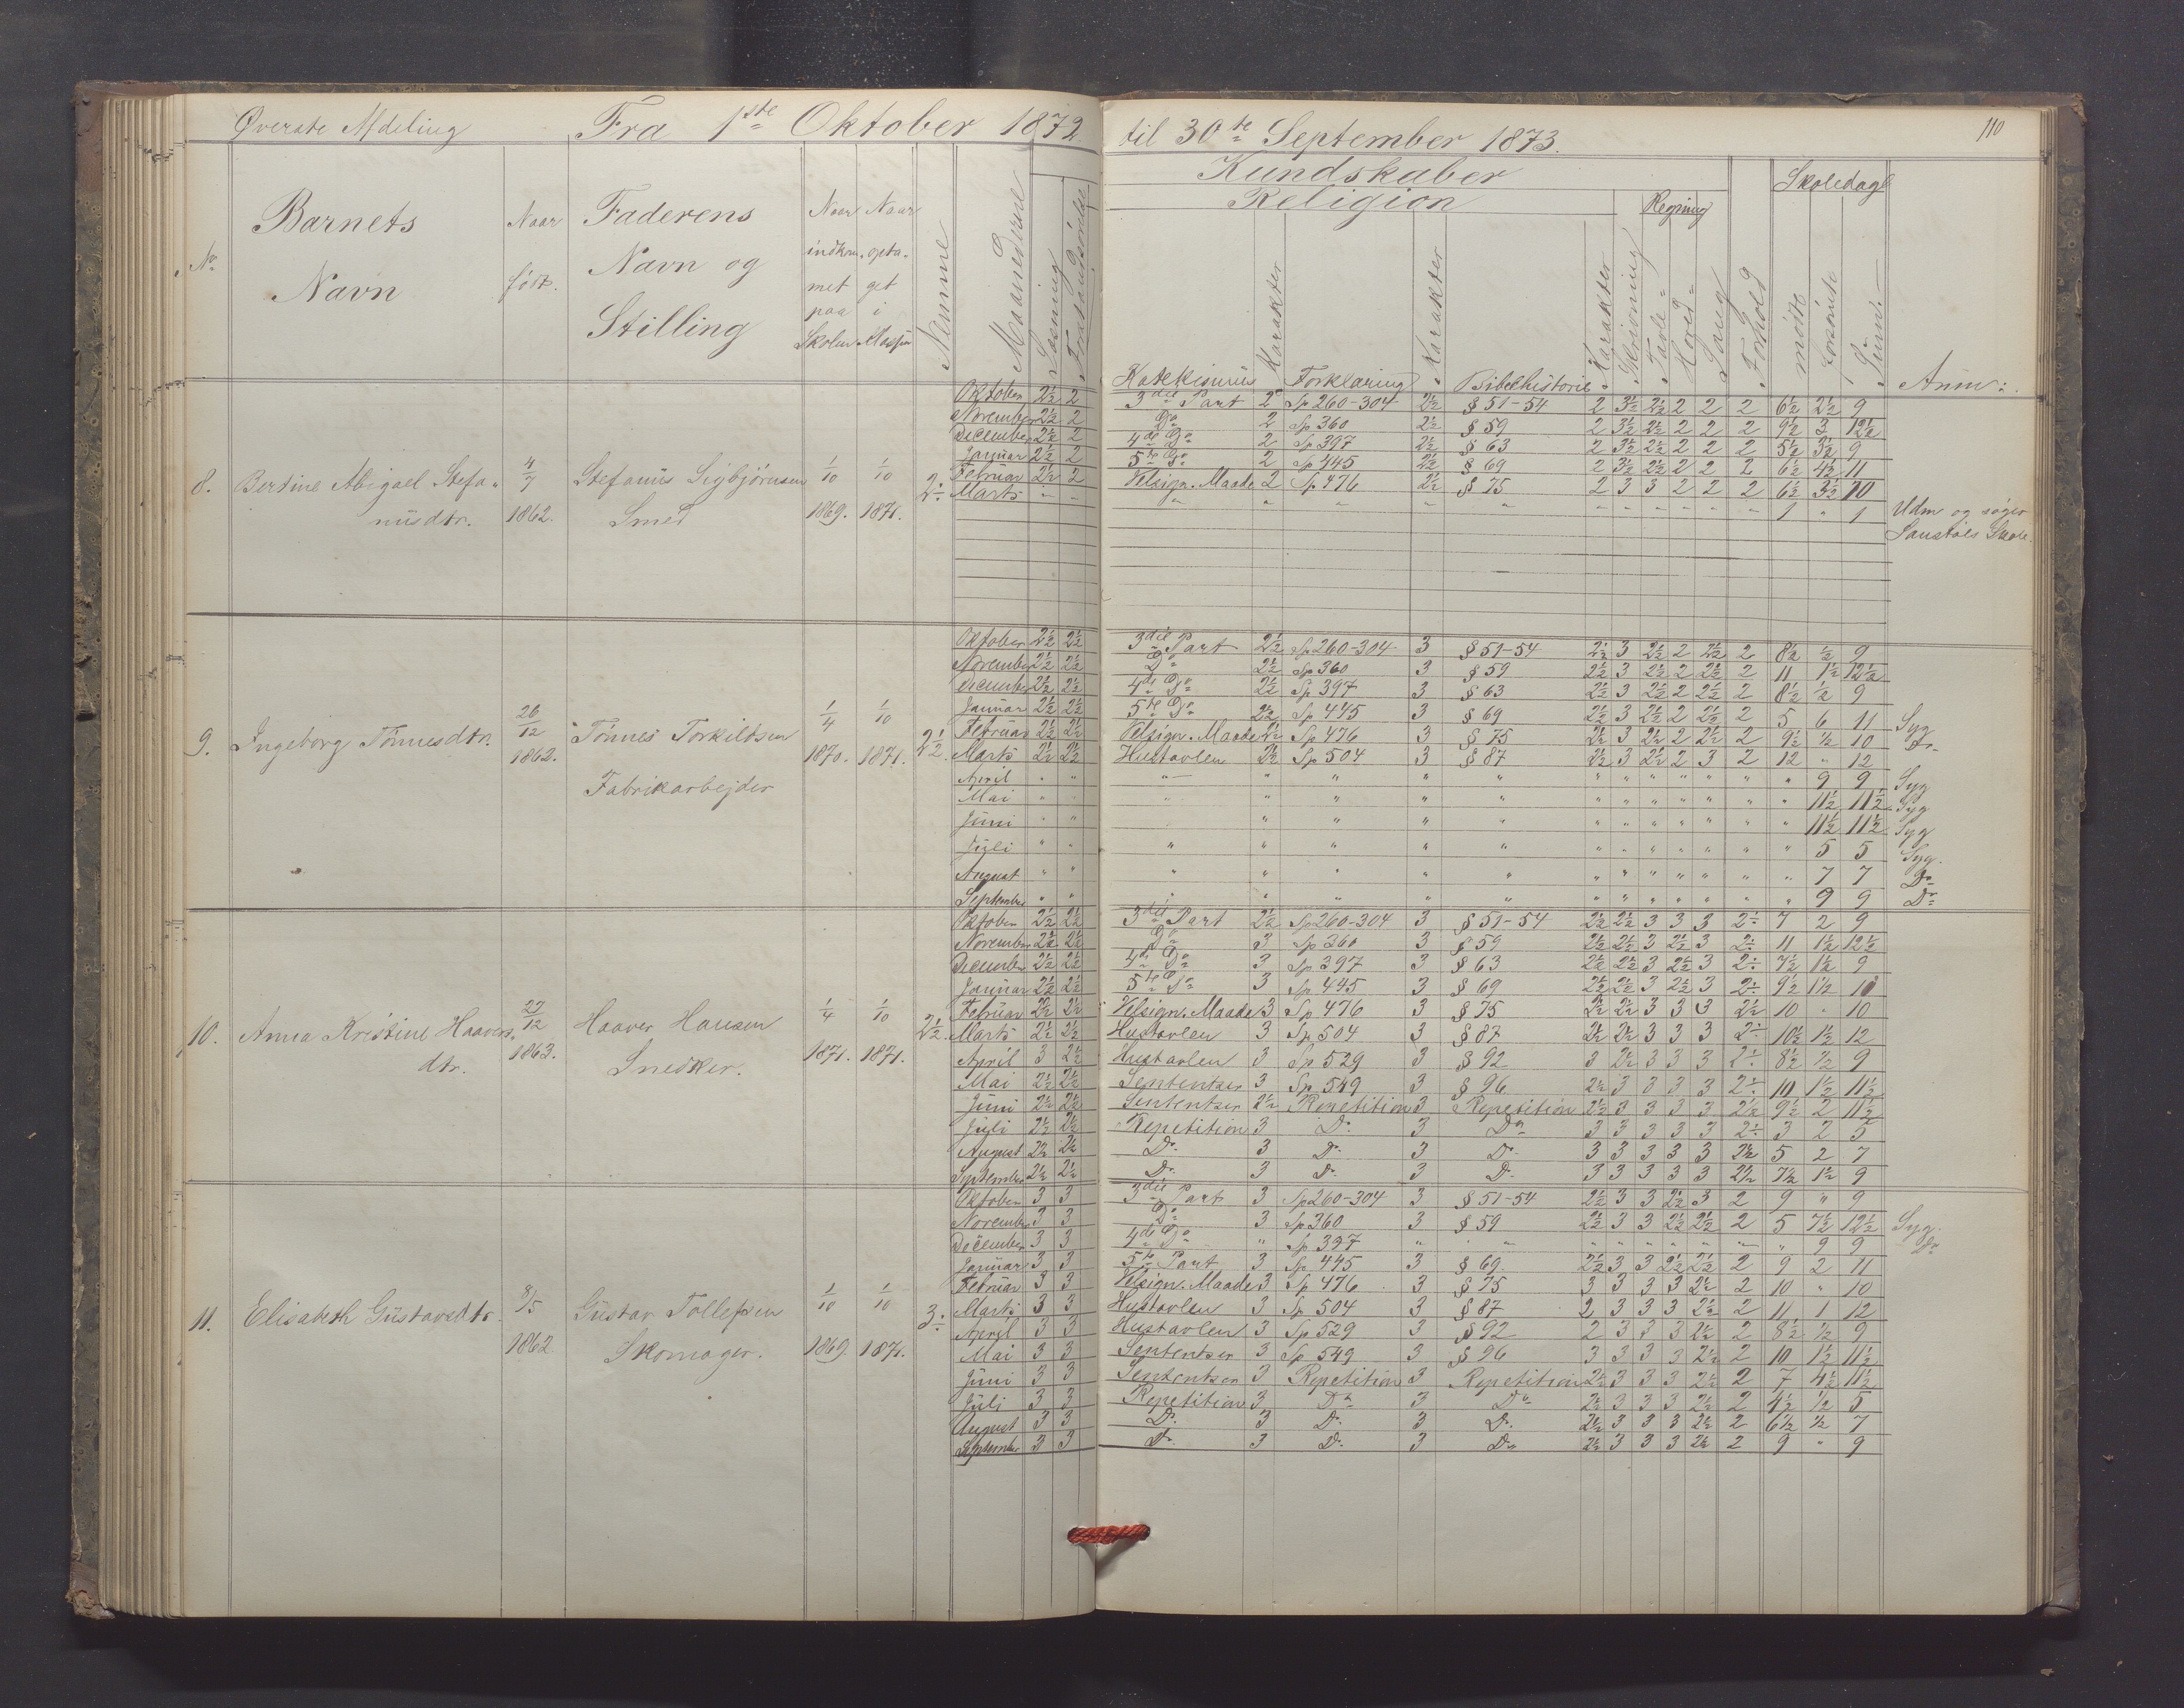 Øverste Afdeling Fra 1ste Oktober 1872 til 30te September 1873. 110
Kundskaber
Religion Regning Skoledage
No Barnets Navn Naar født. Faderens Navn og Stilling Naar indkommet paa Skolen Naar optaget i Klassen Nemme Maanederne Læsning Forstandsøvelse Katekismus Karakter Forklaring Karakter Bibelhistorie Karakter Skrivning Tavle- Hoved- Sang Forhold mødte forsømte Sum: Anm:
8. Bertine Abigael Stefanusdtr. 4/7 1862. Stefanus Sigbjørnsen Smed 1/10 1869. 1/10 1871. 2÷
Oktober 2½ 2 3die Part 2 Sp 260-304 2½ § 51-54 2 3½ 2½ 2 2 2 6½ 2½ 9
November 2½ 2 Do 2 Sp 360 2½ § 59 2 3½ 2½ 2 2 2 9½ 3 12½
December 2½ 2 4de Do 2 Sp 397 2½ § 63 2 3½ 2½ 2 2 2 5½ 3½ 9
Januar 2½ 2 5te Do 2 Sp 445 2½ § 69 2 3½ 2½ 2 2 2 6½ 4½ 11
Februar 2½ 2 Velsign. Maade 2 Sp 476 2½ § 75 2 3 3 2 2 2 6½ 3½ 10
Marts " " " " " " " " " " " " " " 1 " 1 Udm og søger
Skole.
9. Ingeborg Tönnesdtr. 26/12 1862. Tönnes Torkildsen Fabrikarbejder 1/4 1870. 1/10 1871. 2½.
Oktober 2½ 2½ 3die Part 2½ Sp 260-304 3 § 51-54 2½ 3 2½ 2 2½ 2 8½ ½ 9
November 2½ 2½ Do 2½ Sp 360 3 § 59 2½ 3 2½ 2 2½ 2 11 1½ 12½
December 2½ 2½ 4de Do 2½ Sp 397 3 § 63 2½ 3 2½ 2 2½ 2 8½ ½ 9
Januar 2½ 2½ 5te Do 2½ Sp 445 3 § 69 2½ 3 2½ 2 2½ 2 5 6 11 Syg
Februar 2½ 2½ Velsign. Maade 2½ Sp 476 3 § 75 2½ 3 2½ 2 2½ 2 9½ ½ 10 Do
Marts 2½ 2½ Hustavlen 2½ Sp 504 3 § 87 2½ 3 2½ 2 3 2 12 " 12
April " " " " " " " " " " " " " " " 9 9 Syg
Mai " " " " " " " " " " " " " " " 11½ 11½ Syg
Juni " " " " " " " " " " " " " " " 11½ 11½ Syg
Juli " " " " " " " " " " " " " " " 5 5 Syg.
August " " " " " " " " " " " " " " " 7 7 Do
September " " " " " " " " " " " " " " " 9 9 Do
10. Anna Kristine Haaversdtr. 27/12 1863. Haaver Hansen Snedker. 1/4 1871. 1/10 1871. 2½.
Oktober 2½ 2½ 3die Part 2½ Sp 260-304 3 § 51-54 2½ 2½ 3 3 3 2÷ 7 2 9
November 2½ 2½ Do 3 Sp 360 3 § 59 2½ 2½ 3 2½ 3 2÷ 11 1½ 12½
December 2½ 2½ 4de Do 3 Sp 397 3 § 63 2½ 2½ 3 2½ 3 2÷ 7½ 1½ 9
Januar 2½ 2½ 5te Do 3 Sp 445 3 § 69 2½ 2½ 3 2½ 3 2÷ 9½ 1½ 11
Februar 2½ 2½ Velsign. Maade 3 Sp 476 3 § 75 2½ 2½ 3 3 3 2½ 10 " 10
Marts 2½ 2½ Hustavlen 3 Sp 504 3 § 87 2½ 2½ 3 3 3 2÷ 10½ 1½ 12
April 3 2½ Hustavlen 3 Sp 529 3 § 92 3 2½ 3 3 3 2÷ 8½ ½ 9
Mai 2½ 2½ Sententser 3 Sp 549 3 § 96 2½ 3 3 3 3 2÷ 10 1½ 11½
Juni 2½ 2½ Sententser 2½ Repetition 3 Repetition 2½ 3 3 3 3 2½ 9½ 2 11½
Juli 2½ 2½ Repetition 3 Do 3 Do 3 3 3 3 3 2÷ 3 2 5
August 2½ 2½ Do 3 Do 3 Do 3 3 3 3 3 2½ 5 2 7
September 2½ 2½ Do 3 Do 3 Do 3 3 3 3 3 2½ 7½ 1½ 9
11. Elisabeth Gustavsdtr. 8/5 1862. Gustav Tollefsen Skomager. 1/10 1869. 1/10 1871. 3÷
Oktober 3 3 3die Part 3 Sp 260-304 3 § 51-54 2½ 3 3 2½ 3 2 9 " 9
November 3 3 Do 3 Sp 360 3 § 59 2½ 3 3 2½ 2½ 2 5 7½ 12½ Syg.
December 3 3 4de Do " Sp 397 " " " " " " " " " 9 9 Do
Januar 3 3 5te Part 3 Sp 445 3 § 69 2½ 3 3 2½ 2½ 2 9 2 11
Februar 3 3 Velsign. Maade 3 Sp 476 3 § 75 3 3 3 3 2½ 2 10 " 10
Marts 3 3 Hustavlen 3 Sp 504 3 § 87 2 3 3 3 2½ 2 11 1 12
April 3 3 Hustavlen 3 Sp 529 3 § 92 2 3 3 3 2½ 2 8½ ½ 9
Mai 3 3 Sententser 3 Sp 549 3 § 96 3 3 3 3 2½ 2 10 1½ 11½
Juni 3 3 Sententser 3 Repetition 3 Repetition 2½ 3 3 3 2½ 2 7 4½ 11½
Juli 3 3 Repetition 3 Do 3 Do 2½ 3 3 3 2½ 2 4½ ½ 5
August 3 3 Do 3 Do 3 Do 2½ 3 3 3 2½ 2 6½ ½ 7
September 3 3 Do 3 Do 3 Do 2½ 3 3 3 2½ 2 9 " 9